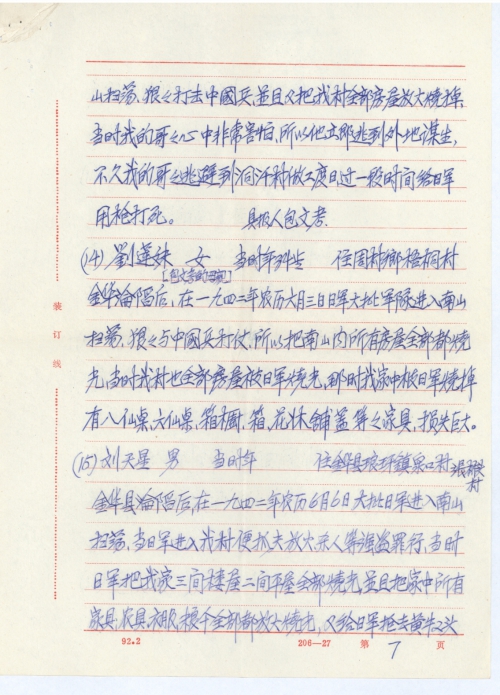 山扫荡,狠々打击中國兵,並且又把我村全部房屋放火燒掉,
当时我的哥々心中非常害怕,所以他立即逃到外地謀生,
不久我的哥々逃避到洞汗村做工度日,过一段时间给日军
用枪打死。 具报人包文考.
(14) 劉蓮妹 女 当时年 住周村鄉梧桐村
[包文考的母親]
金华淪陷后,在一九四二年农历六月三日日军大批軍隊進入南山
扫荡,狠々与中國兵打仗,所以把南山内所有房屋全部都燒
光,当时我村也全部房屋被日军燒光,那时我家中被日军燒掉
有八仙桌,六仙桌,箱橱,箱,花床鋪蓋等々家具,損失巨大。
(15) 刘天星 男 当时年 住金华县琅琊鎮泉口村
村
金华县淪陷后,在一九四二年农历6月6日大批日军進入南山
扫荡,当日军進入我村便抓夫放火杀人等罪行,当时
日军把我家三间楼屋二间平屋全部燒光,並且把家中所有
家具,农具,衣服,粮食全部都放火燒光,又给日军抢去黄牛2头
装订线
92.2 206—27 第 7 页